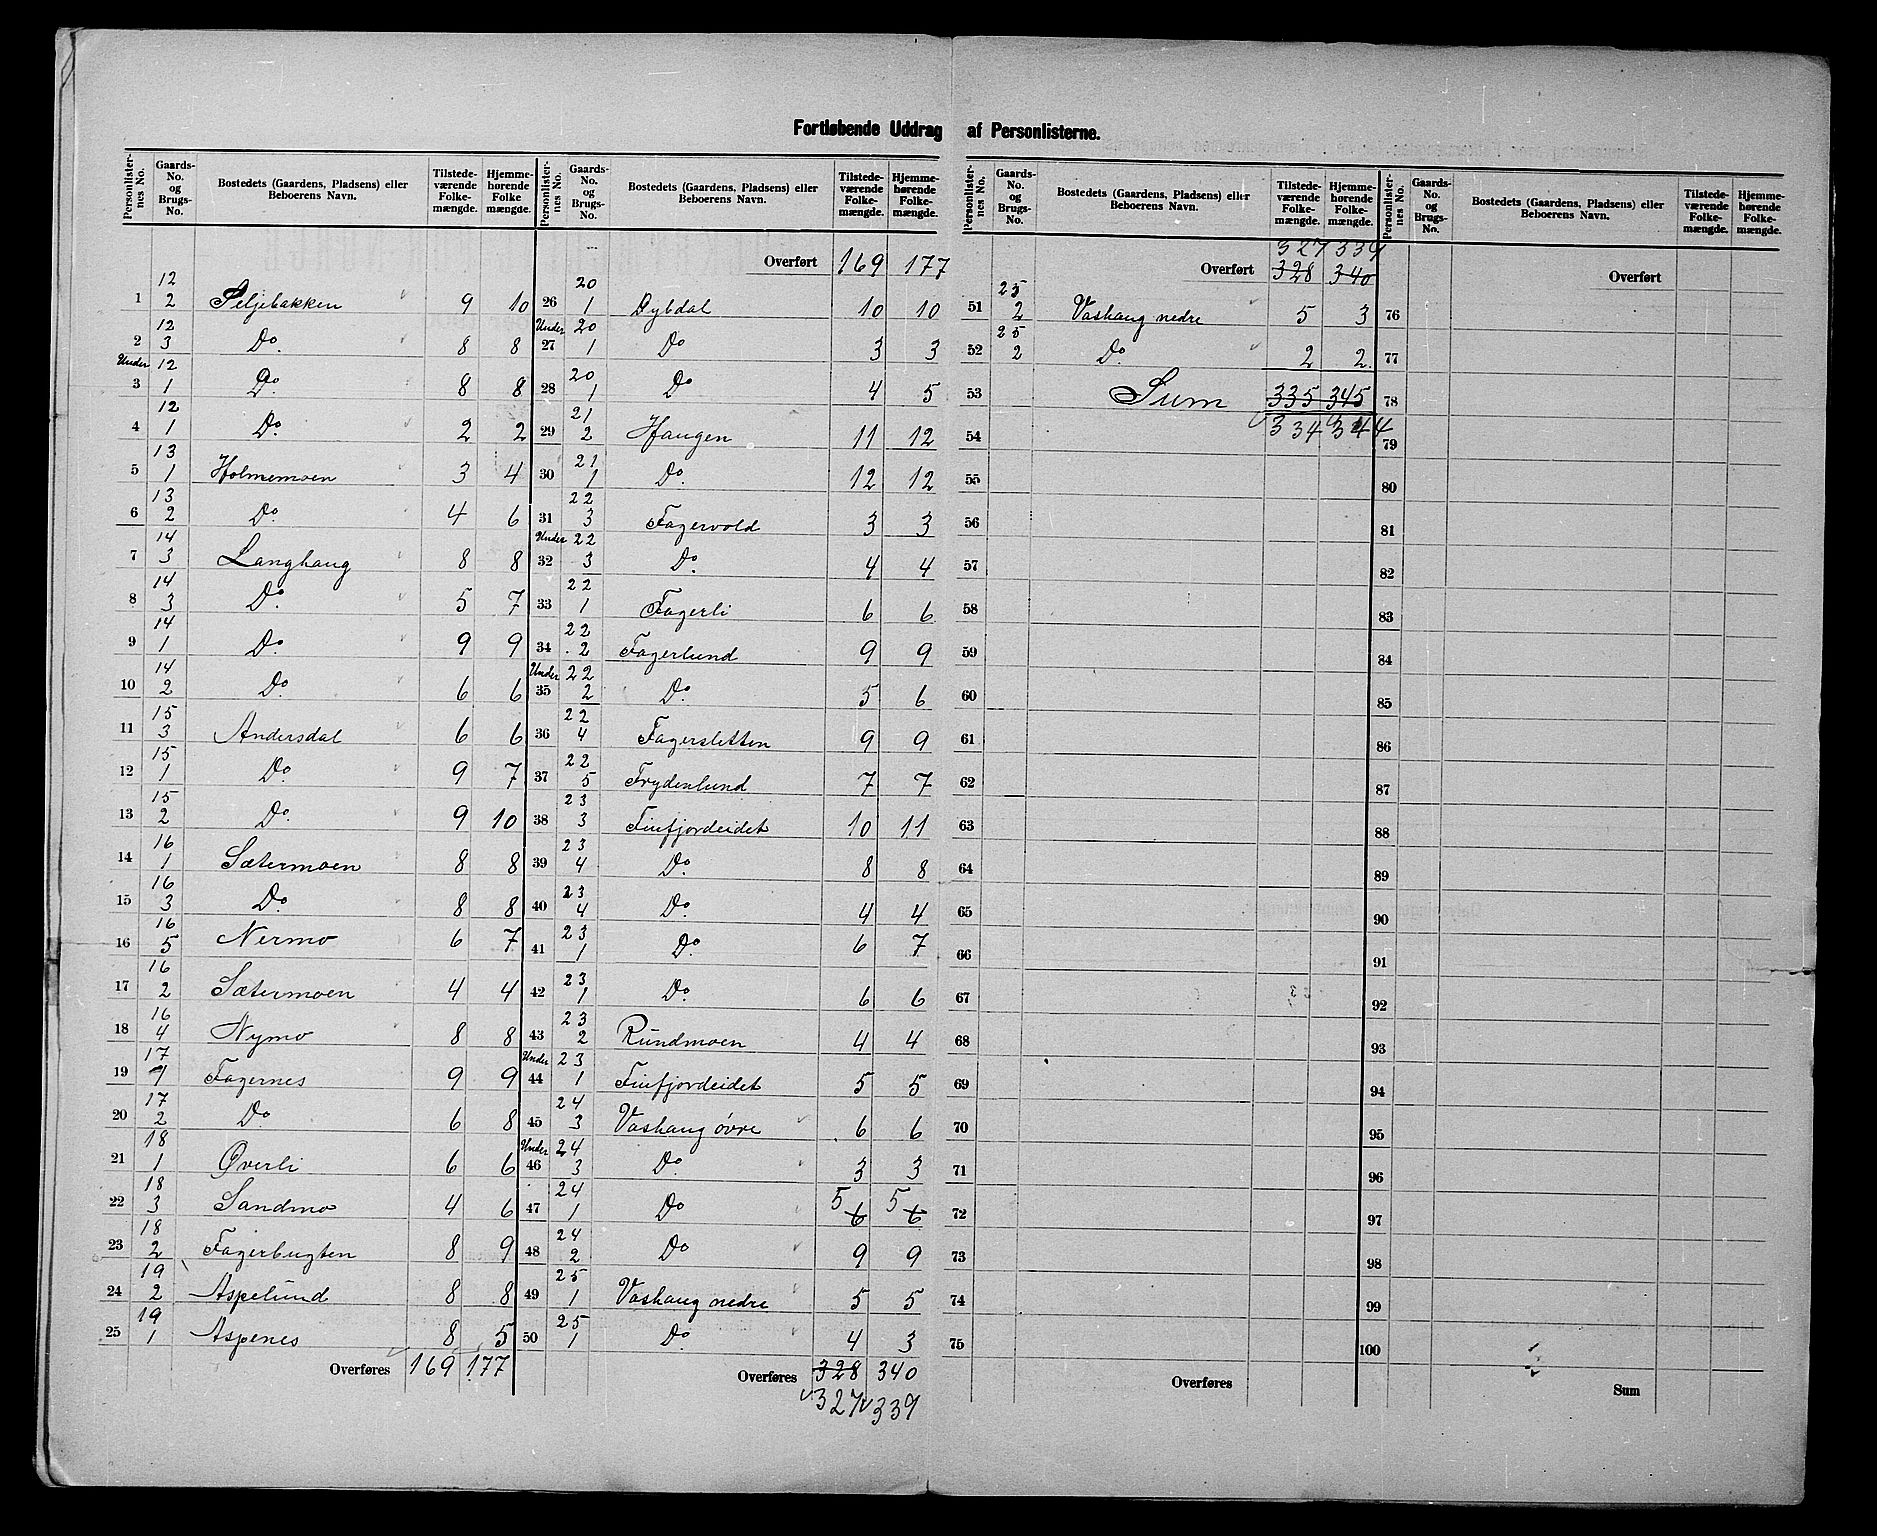 Fortløbende Uddrag af Personlisterne.
Personlisternes No. | Gaards-No. og Brugs-No. | Bostedets (Gaardens, Pladsens) eller Beboerens Navn. | Tilstedeværende Folkemængde. | Hjemmehørende Folkemængde.
1 | 12 2 | Seljebakken | 9 | 10
2 | 12 3 | Do. | 8 | 8
Under 3 | 12 1 | Do. | 8 | 8
4 | 12 1 | Do. | 2 | 2
5 | 13 1 | Holmemoen | 3 | 4
6 | 13 2 | Do. | 4 | 6
7 | 14 3 | Langhaug | 8 | 8
8 | 14 3 | Do. | 5 | 7
9 | 14 1 | Do. | 9 | 9
10 | 14 2 | Do. | 6 | 6
11 | 15 3 | Andersdal | 6 | 6
12 | 15 1 | Do. | 9 | 7
13 | 15 2 | Do. | 9 | 10
14 | 16 1 | Sætermoen | 8 | 8
15 | 16 3 | Do. | 8 | 8
16 | 16 5 | Nermo | 6 | 7
17 | 16 2 | Sætermoen | 4 | 4
18 | 16 4 | Nymo | 8 | 8
19 | 17 1 | Fagernes | 9 | 9
20 | 17 2 | Do | 6 | 8
21 | 18 1 | Øverli | 6 | 6
22 | 18 3 | Sandmo | 4 | 6
23 | 18 2 | Fagerbugten | 8 | 9
24 | 19 2 | Aspelund | 8 | 8
25 | 19 1 | Aspenes | 8 | 5
Overføres | 169 | 177
Personlisternes No. | Gaards-No. og Brugs-No. | Bostedets (Gaardens, Pladsens) eller Beboerens Navn. | Tilstedeværende Folkemængde. | Hjemmehørende Folkemængde.
Overført | 169 | 177
26 | 20 1 | Dybdal | 10 | 10
Under 27 | 20 1 | Do | 3 | 3
28 | 20 1 | Do | 4 | 5
29 | 21 2 | Haugen | 11 | 12
30 | 21 1 | Do. | 12 | 12
31 | 22 3 | Fagervold | 3 | 3
Under 32 | 22 3 | Do. | 4 | 4
33 | 22 1 | Fagerli | 6 | 6
34 | 22 2 | Fagerlund | 9 | 9
Under 35 | 22 2 | Do. | 5 | 6
36 | 22 4 | Fagersletten | 9 | 9
37 | 22 5 | Frydenlund | 7 | 7
38 | 23 3 | Finfjordeidet | 10 | 11
39 | 23 4 | Do. | 8 | 8
40 | 23 4 | Do. | 4 | 4
41 | 23 1 | Do. | 6 | 7
42 | 23 1 | Do. | 6 | 6
43 | 23 2 | Rundmoen | 4 | 4
Under 44 | 23 1 | Finfjordeidet | 5 | 5
45 | 24 3 | Vashaug øvre | 6 | 6
Under 46 | 24 3 | Do. | 3 | 3
47 | 24 1 | Do | 5 6 | 5 6
48 | 24 2 | Do | 9 | 9
49 | 25 1 | Vashaug nedre | 5 | 5
50 | 25 1 | Do. | 4 | 3
Overføres | 328 | 340
327 | 339
Personlisternes No. | Gaards-No. og Brugs-No. | Bostedets (Gaardens, Pladsens) eller Beboerens Navn. | Tilstedeværende Folkemængde. | Hjemmehørende Folkemængde.
327 | 339
Overført | 328 | 340
51 | 25 2 | Vashaug nedre | 5 | 3
52 | 25 2 | Do. | 2 | 2
53 | Sum | 335 | 345
54 | 334 | 344
55
56
57
58
59
60
61
62
63
64
65
66
67
68
69
70
71
72
73
74
75
Overføres
Personlisternes No. | Gaards-No. og Brugs-No. | Bostedets (Gaardens, Pladsens) eller Beboerens Navn. | Tilstedeværende Folkemængde. | Hjemmehørende Folkemængde.
Overført
76
77
78
79
80
81
82
83
84
85
86
87
88
89
90
91
92
93
94
95
96
97
98
99
100
Sum